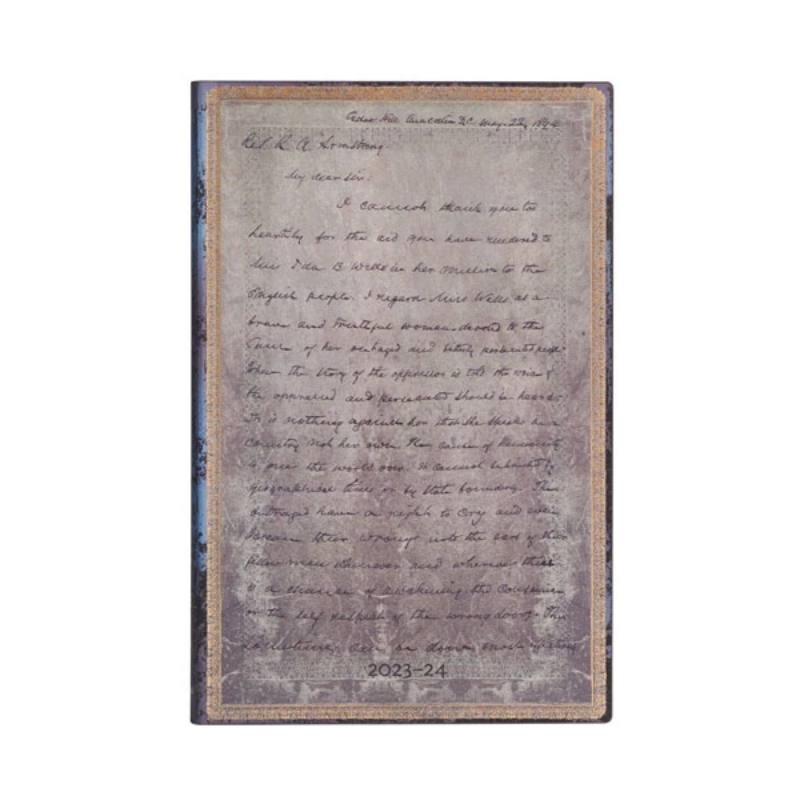 Cedar Hill Anacostia D.C. May. 22, 1894
Rev. R. A. Armstrong
My dear Sir:
I cannot thank you too
heartily for the aid you have rendered to
Miss Ida B Wells in her mission to the
English people. I regard Miss Wells as a
brave and truthful woman devoted to the
cause of her outraged and bitterly persecuted people
When the story of the oppressor is told the voice of
the oppressed and persecuted should be heard.
It is nothing against her that she speaks in a
country not her own. The cause of humanity
is one the world over. It cannot be limited by
geographical lines or by State boundary. The
outraged have a right to cry and even
scream their wrongs into the ears of their
fellow man wherever and whenever there
is a chance of awakening the conscience
or the self respect of the wrongdoer. This
sometimes can be done most
2023–24